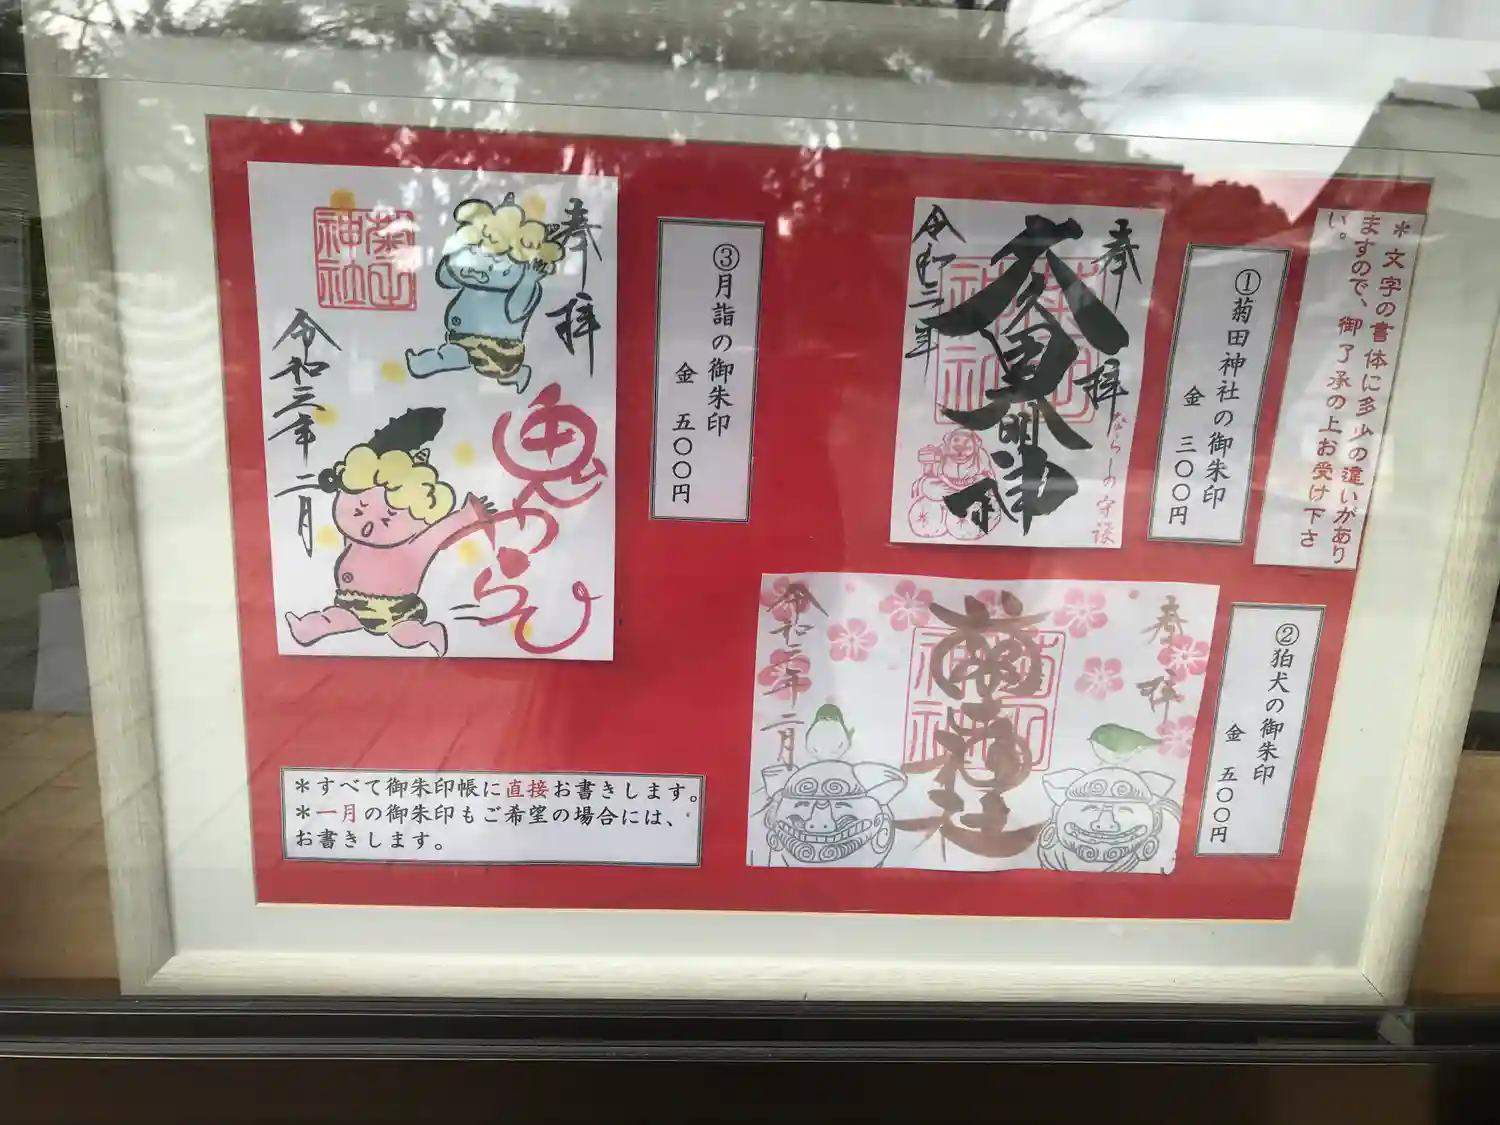 ＊文字の書体に多少の違いがあり
ますので、御了承の上お受け下さ
い。
①菊田神社の御朱印
金 三〇〇円
奉拝
久國大明神
令和三年
ならしの守護
②狛犬の御朱印
金 五〇〇円
奉拝
菊田神社
令和三年二月
③月詣の御朱印
金 五〇〇円
奉拝
鬼やらひ
菊田神社
令和三年二月
＊すべて御朱印帳に直接お書きします。
＊一月の御朱印もご希望の場合には、
お書きします。